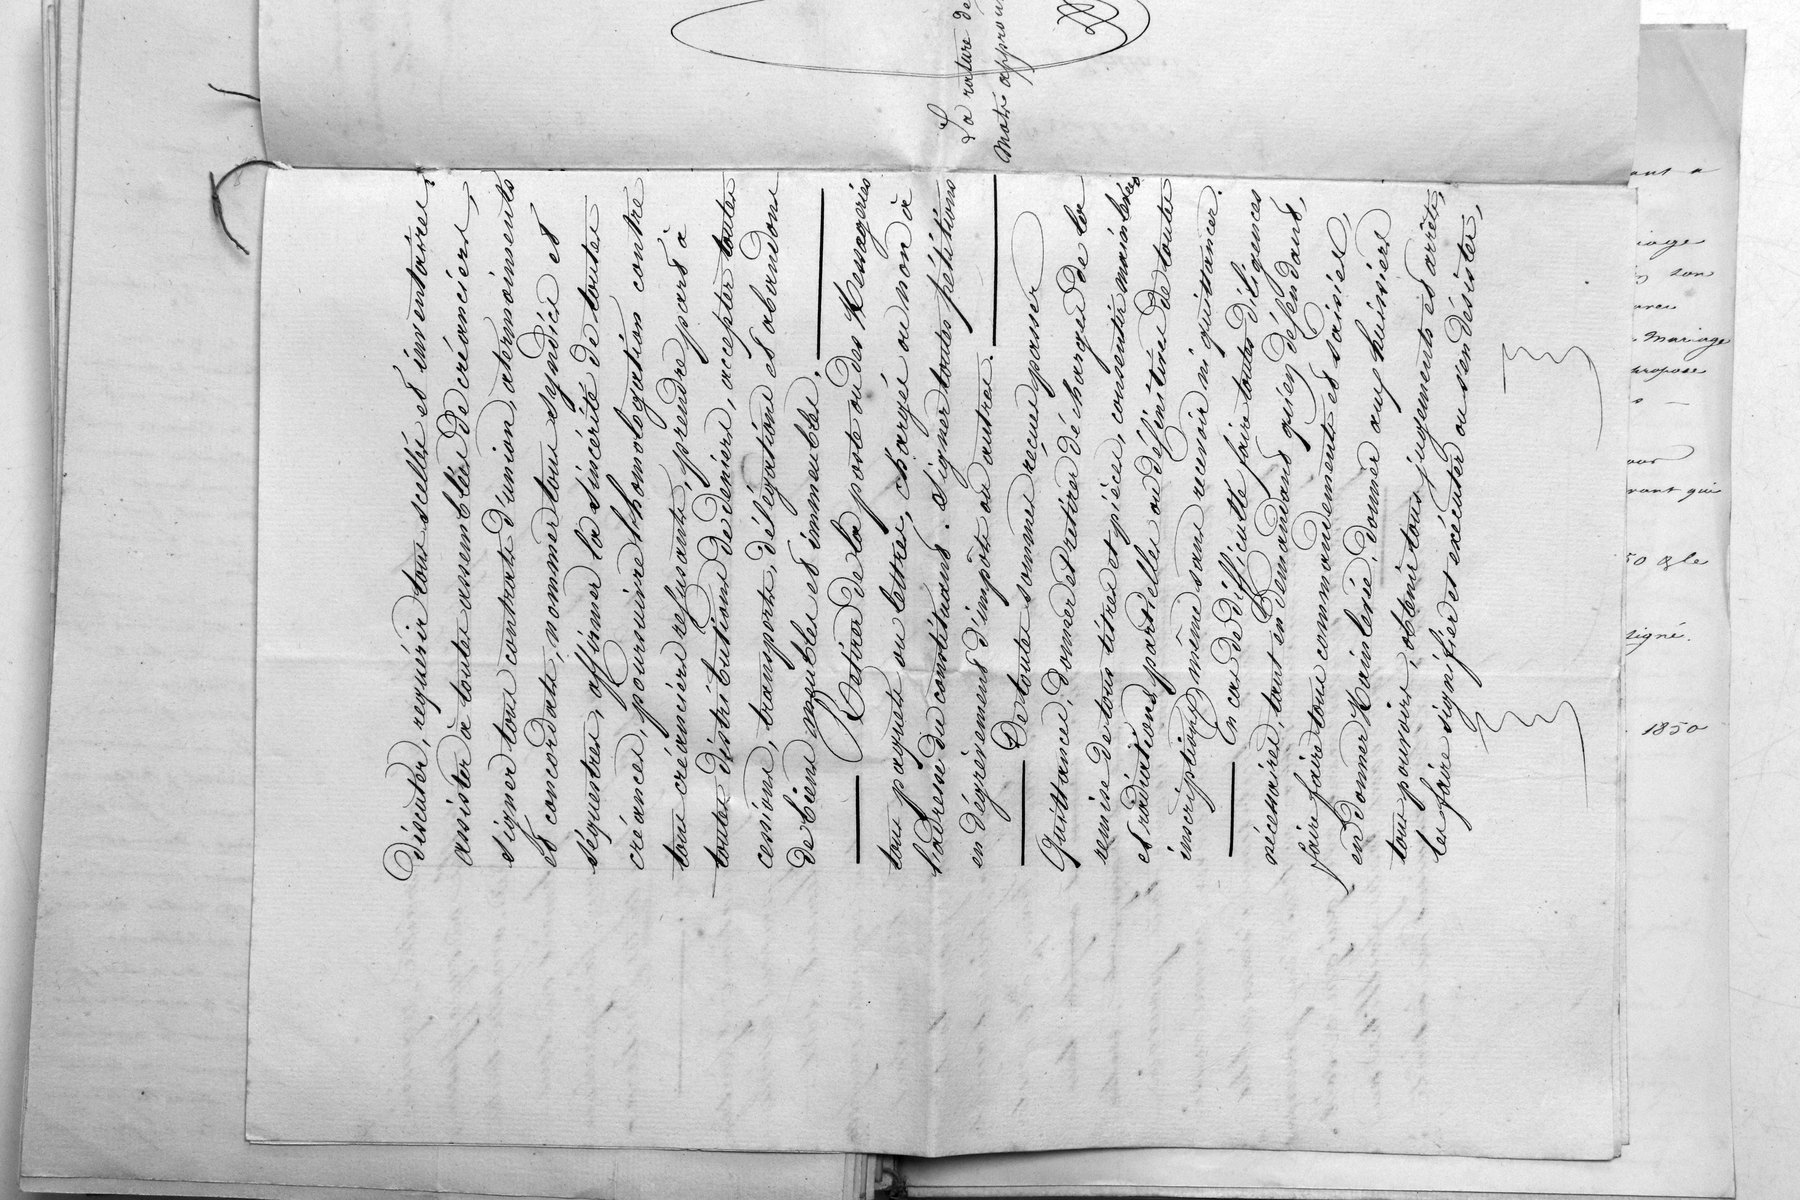 discuter, requérir tous scellés et inventaires,
assister à toutes assemblées de créanciers,
signer tous contrats d'union, atermoiements
et concordats, nommer tous syndics et
séquestres, affirmer la sincérité de toutes
créances, poursuivre l'homologation contre
tous créanciers refusants, prendre part à
toutes distributions de deniers, accepter toutes
cessions, transports, délégations et abandons
de biens meubles et immeubles.
Retirer de la poste ou des Messageries
tous paquets ou lettres, chargés ou non à
l'adresse du constituant. signer toutes pétitions
en dégrèvement d'impôts ou autres.
De toutes sommes reçues passer
Quittances, donner et retirer décharges de la
remise de tous titres et pièces, consentir mainlevées
et radiations partielles ou définitives de toutes
inscriptions même sans recevoir ni quittancer.
En cas de difficulté faire toutes diligences
nécessaires, tant en demandant qu'en défendant,
faire faire tous commandements et saisies,
en donner Mainlevée, donner aux huissiers
tous pouvoirs, obtenir tous jugements et arrêts,
les faire signifier et exécuter ou s'en désister,
La rature de
Mots approu
Mariage
propose
50 & le
signé.
1850